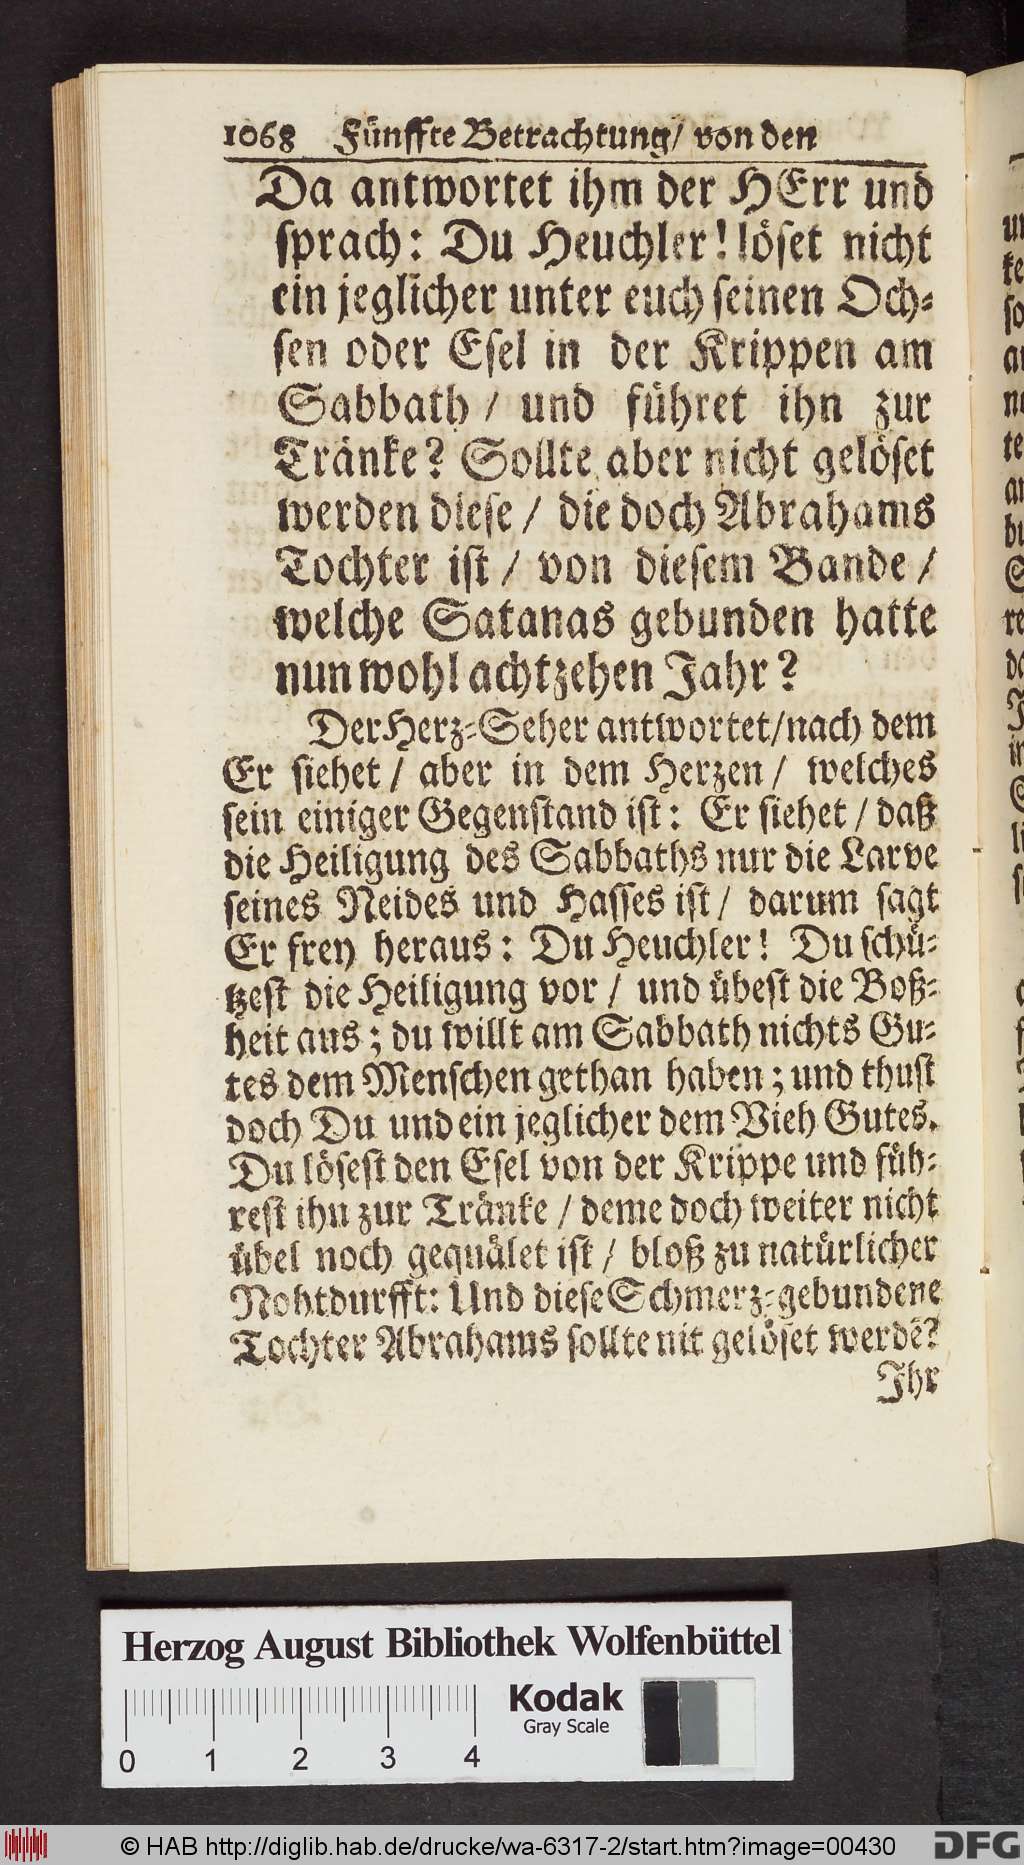 1068 Fünffte Betrachtung/ von den
Da antwortet ihm der HErr und
sprach: Du Heuchler! löset nicht
ein jeglicher unter euch seinen Och-
sen oder Esel in der Krippen am
Sabbath / und führet ihn zur
Tränke? Sollte aber nicht gelöset
werden diese / die doch Abrahams
Tochter ist / von diesem Bande /
welche Satanas gebunden hatte
nun wohl achtzehen Jahr?
Der Herz-Seher antwortet/nach dem
Er siehet / aber in dem Herzen / welches
sein einiger Gegenstand ist: Er siehet / daß
die Heiligung des Sabbaths nur die Larve
seines Neides und Hasses ist / darum sagt
Er frey heraus: Du Heuchler! Du schü-
tzest die Heiligung vor / und übest die Boß-
heit aus; du willt am Sabbath nichts Gu-
tes dem Menschen gethan haben; und thust
doch Du und ein jeglicher dem Vieh Gutes.
Du lösest den Esel von der Krippe und füh-
rest ihn zur Tränke / deme doch weiter nicht
übel noch gequälet ist / bloß zu natürlicher
Nohtdurfft: Und diese Schmerz-gebundene
Tochter Abrahams sollte nit gelöset werdẽ?
Ihr
Herzog August Bibliothek Wolfenbüttel
Kodak
Gray Scale
0 1 2 3 4
© HAB http://diglib.hab.de/drucke/wa-6317-2/start.htm?image=00430
DFG